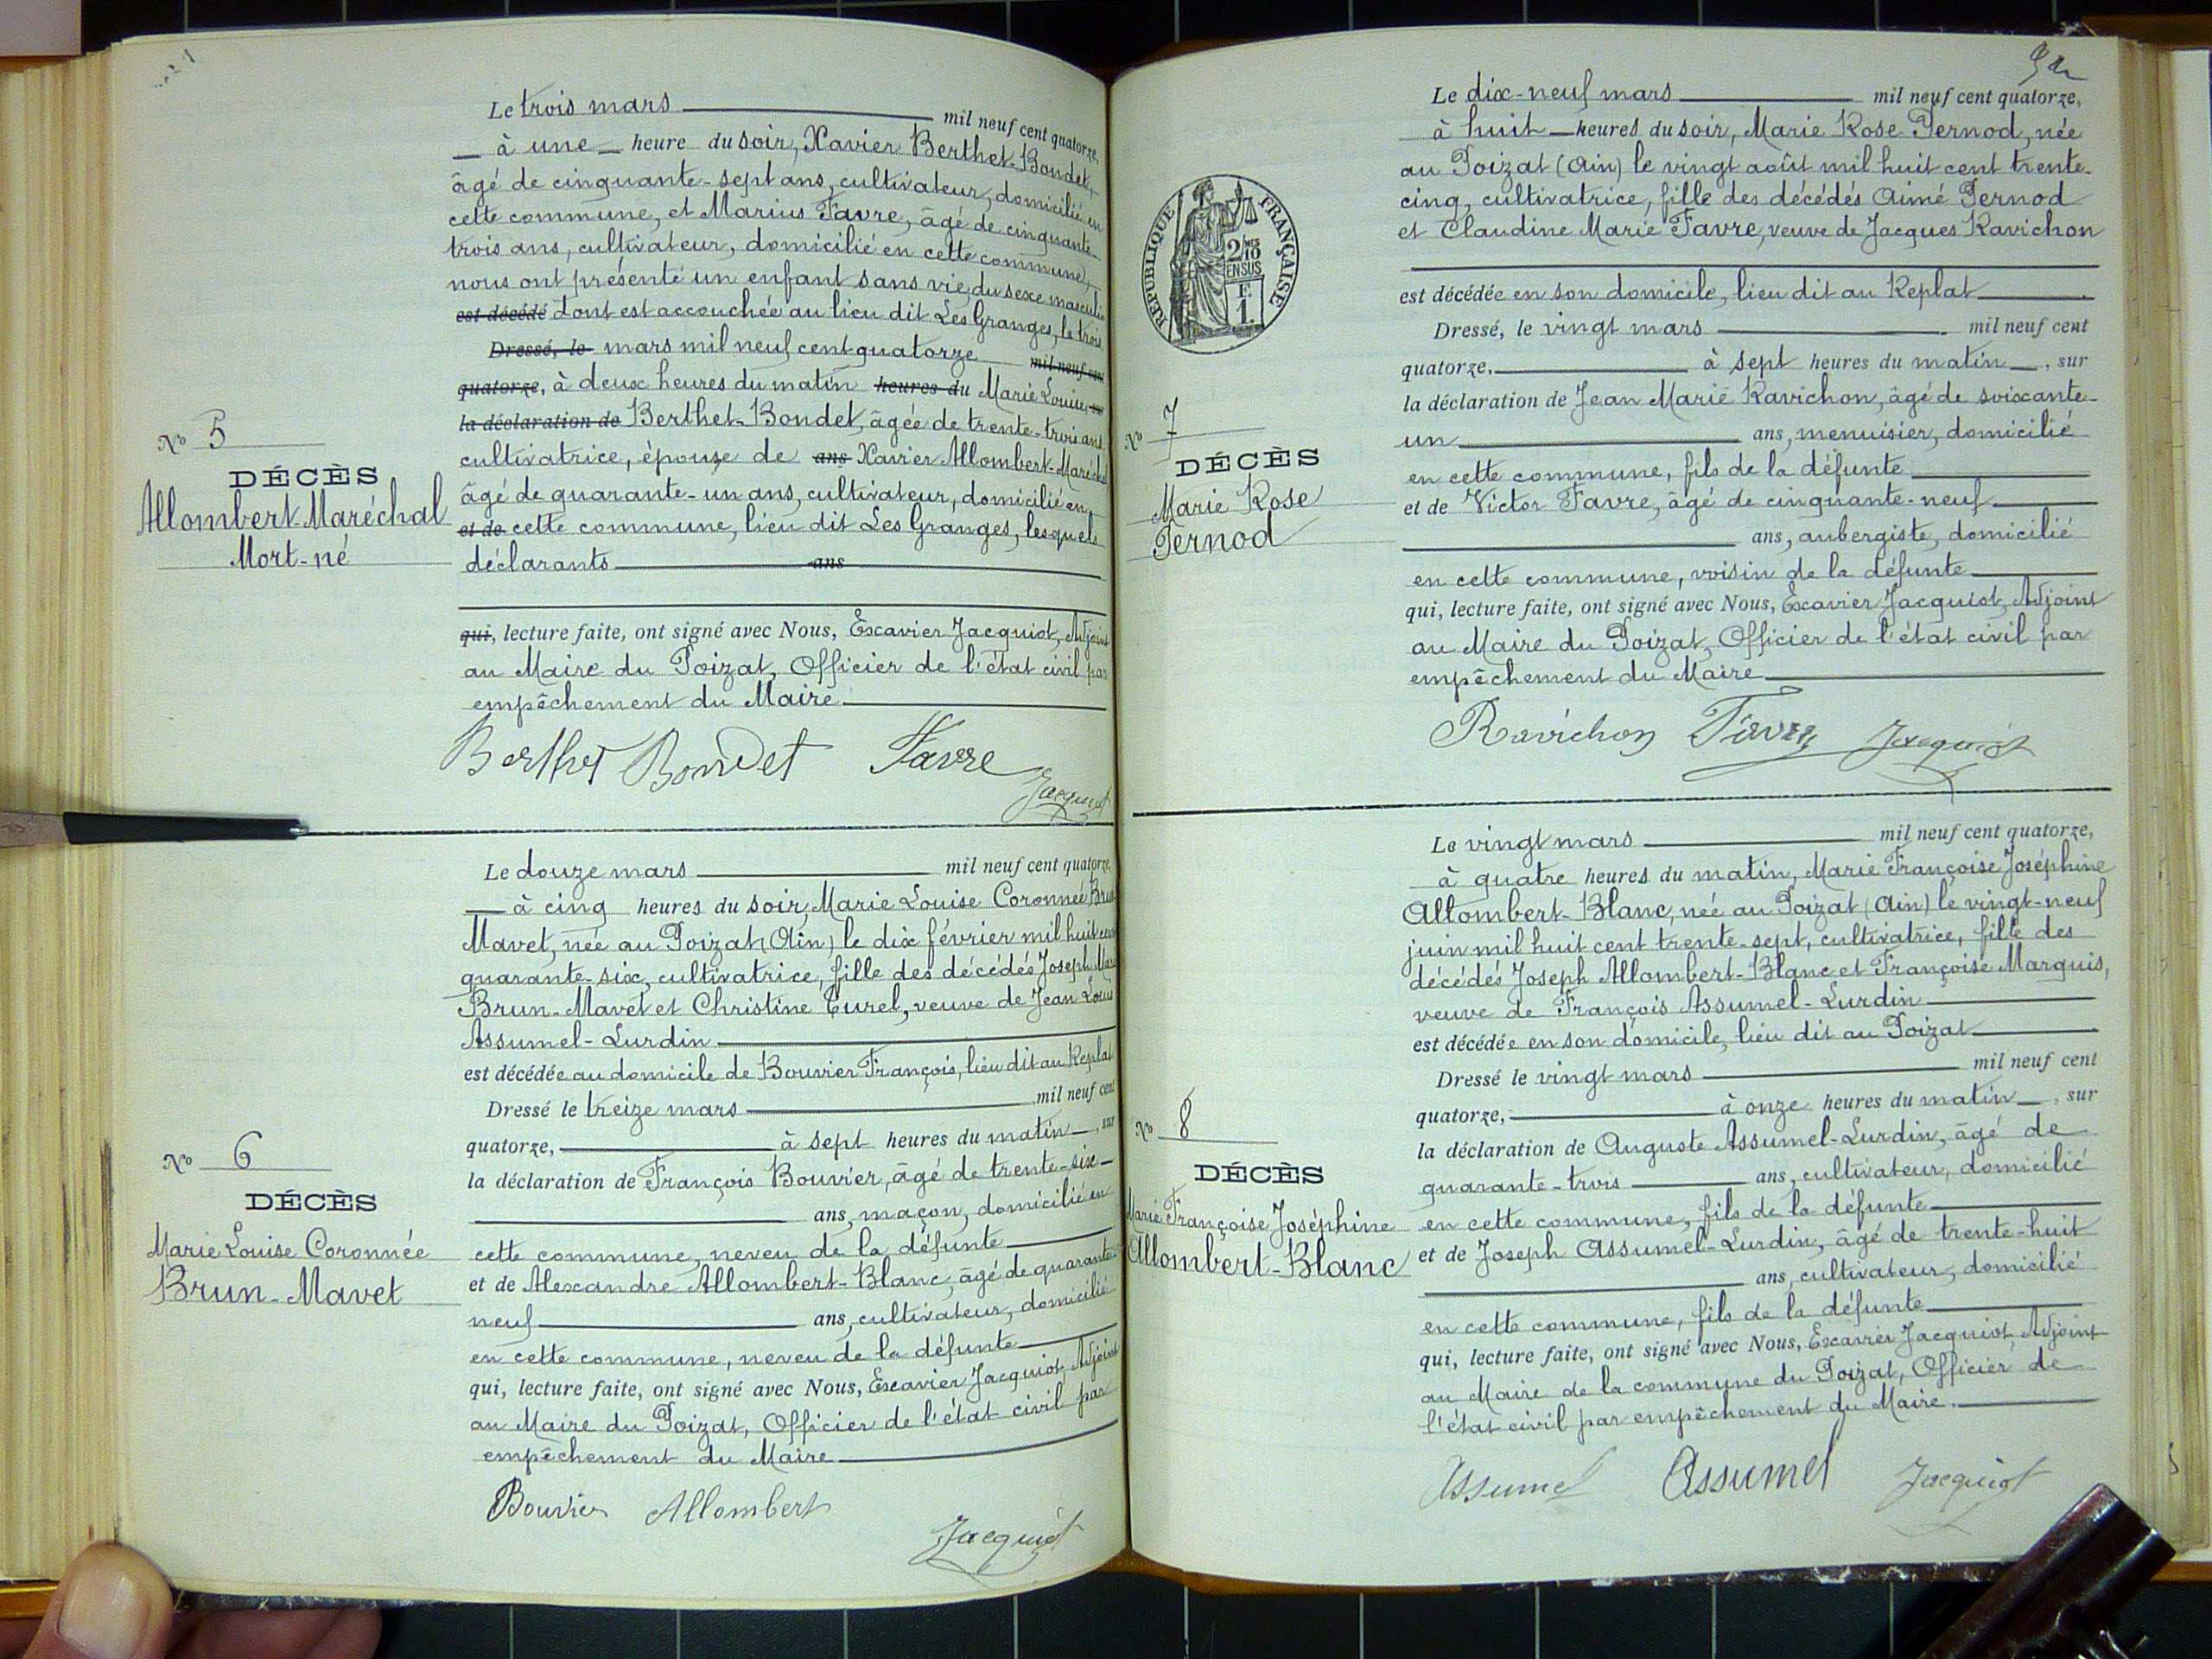 Le trois mars mil neuf cent quatorze,
à une heure du soir, Xavier Berthet-Bondet,
âgé de cinquante-sept ans, cultivateur, domicilié en
cette commune, et Marius Favre, âgé de cinquante-
trois ans, cultivateur, domicilié en cette commune,
nous ont présenté un enfant sans vie, du sexe masculin
est décédé dont est accouchée au lieu dit Les Granges, le trois
Dressé, le mars mil neuf cent quatorze mil neuf cent
quatorze, à deux heures du matin heures du Marie Louise sur
la déclaration de Berthet-Bondet, âgée de trente-trois ans
cultivatrice, épouse de ans Xavier Allombert-Maréchal
âgé de quarante-un ans, cultivateur, domicilié en
et de cette commune, lieu dit Les Granges, lesquels
déclarants ans
qui, lecture faite, ont signé avec Nous, Escavier Jacquiot, Adjoint
au Maire du Poizat, Officier de l'état civil par
empêchement du Maire
Berthet Bondet Favre
Jacquiot
No 5
DÉCÈS
Allombert-Maréchal
Mort-né
Le douze mars mil neuf cent quatorze,
à cinq heures du soir, Marie Louise Coronnée Brun
Mavet, née au Poizat (Ain) le dix février mil huit cent
quarante-six, cultivatrice, fille des décédés Joseph Marie
Brun-Mavet et Christine Curel, veuve de Jean Louis
Assumel-Lurdin
est décédée au domicile de Bouvier François, lieu dit au Replat
Dressé le treize mars mil neuf cent
quatorze, à sept heures du matin, sur
la déclaration de François Bouvier, âgé de trente-six
ans, maçon, domicilié en
cette commune, neveu de la défunte
et de Alexandre Allombert-Blanc, âgé de quarante-
neuf ans, cultivateur, domicilié
en cette commune, neveu de la défunte
qui, lecture faite, ont signé avec Nous, Escavier Jacquiot, Adjoint
au Maire du Poizat, Officier de l'état civil par
empêchement du Maire
Bouvier Allombert
Jacquiot
No 6
DÉCÈS
Marie Louise Coronnée
Brun-Mavet
Le dix-neuf mars mil neuf cent quatorze,
à huit heures du soir, Marie Rose Pernod, née
au Poizat (Ain) le vingt août mil huit cent trente-
cinq, cultivatrice, fille des décédés Aimé Pernod
et Claudine Marie Favre, veuve de Jacques Ravichon
est décédée en son domicile, lieu dit au Replat
Dressé, le vingt mars mil neuf cent
quatorze, à sept heures du matin, sur
la déclaration de Jean Marie Ravichon, âgé de soixante-
un ans, menuisier, domicilié
en cette commune, fils de la défunte
et de Victor Favre, âgé de cinquante-neuf
ans, aubergiste, domicilié
en cette commune, voisin de la défunte
qui, lecture faite, ont signé avec Nous, Escavier Jacquiot, Adjoint
au Maire du Poizat, Officier de l'état civil par
empêchement du Maire
Ravichon Favre Jacquiot
RÉPUBLIQUE FRANÇAISE
2/10 EN SUS
F.
1.
No 7
DÉCÈS
Marie Rose
Pernod
Le vingt mars mil neuf cent quatorze,
à quatre heures du matin, Marie Françoise Joséphine
Allombert-Blanc, née au Poizat (Ain) le vingt-neuf
juin mil huit cent trente-sept, cultivatrice, fille des
décédés Joseph Allombert-Blanc et Françoise Marquis,
veuve de François Assumel-Lurdin
est décédée en son domicile, lieu dit au Poizat
Dressé le vingt mars mil neuf cent
quatorze, à onze heures du matin, sur
la déclaration de Auguste Assumel-Lurdin, âgé de
quarante-trois ans, cultivateur, domicilié
en cette commune, fils de la défunte
et de Joseph Assumel-Lurdin, âgé de trente-huit
ans, cultivateur, domicilié
en cette commune, fils de la défunte
qui, lecture faite, ont signé avec Nous, Escavier Jacquiot, Adjoint
au Maire de la commune du Poizat, Officier de
l'état civil par empêchement du Maire.
Assumel Assumel Jacquiot
No 8
DÉCÈS
Marie Françoise Joséphine
Allombert-Blanc